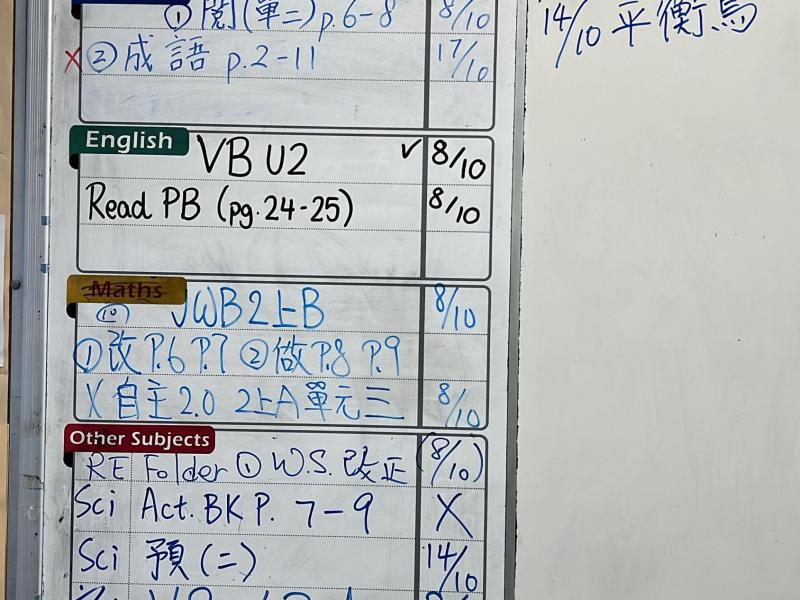 ① 閱(單二)p.6-8 8/10
14/10 平衡鳥
X ② 成語 p.2-11 17/10
English VB U2 ✓ 8/10
Read PB (pg.24-25) 8/10
Maths
⑩ √WB2上B 8/10
① 改 P.6 P.7 ② 做 P.8 P.9
X 自主 2.0 2上A 單元三 8/10
Other Subjects
RE Folder ① W.S. 改正 (8/10)
Sci Act. BK P. 7-9 X
Sci 預(二) 14/10